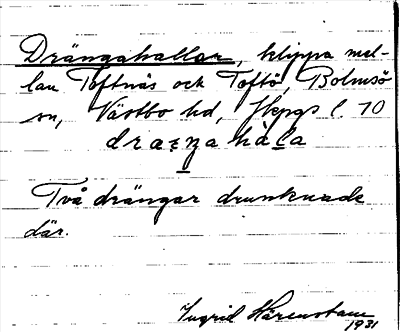 Drängahallar, klippa mel-
lan Toftnäs och Toftö, Bolmsö
sn, Västbo hd, Jkpgs l. 70
Två drängar drunknade
där.
Ingrid Härenstam
1931